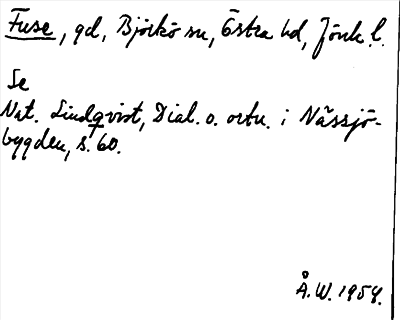 Fuse, gd, Björkö sn, Östra hd, Jönk. l.
Se
Nat. Lindqvist, Dial. o. ortn. i Nässjö-
bygden, s. 60.
Å. W. 1954.